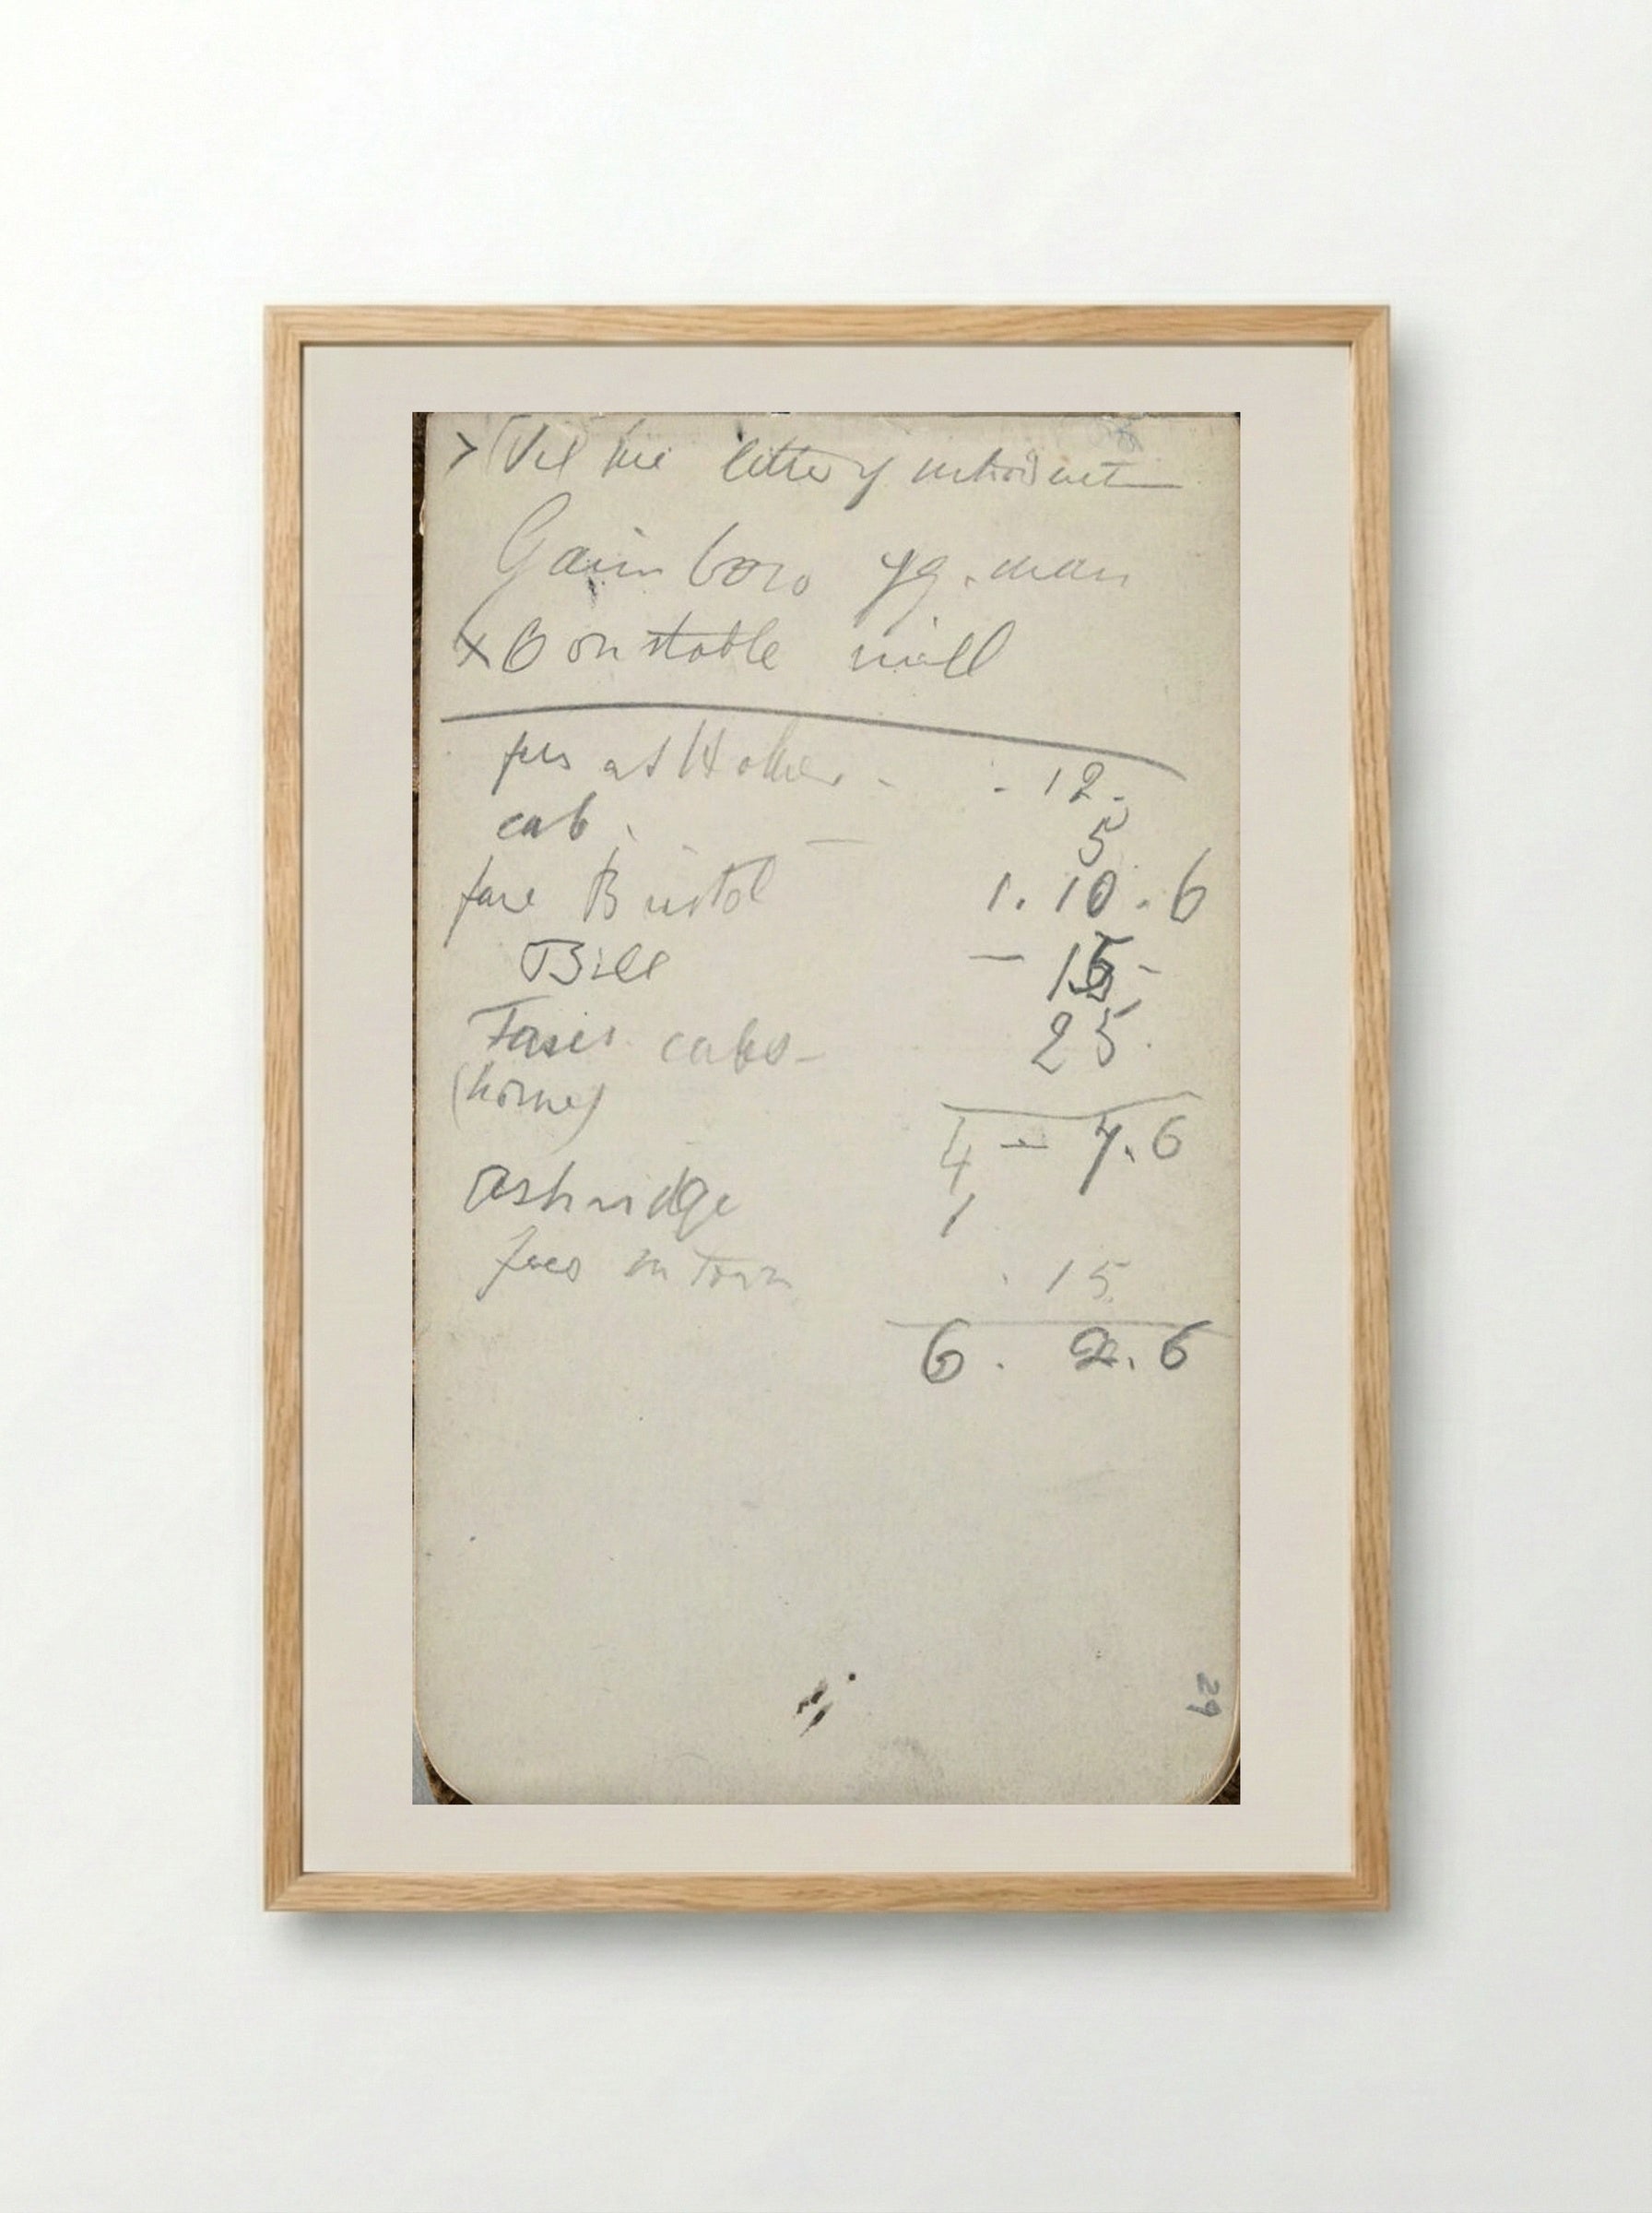 letter of introduct
Gainsboro yg. man
x Constable mill
fees at Holker - - 12 -
cab. - 5
fare Bristol 1. 10. 6
Bill - 15 -
Taxis cabs - 25.
(home)
4 - 7. 6
Ashridge 1
fees in Town . 15
6. 2. 6
29